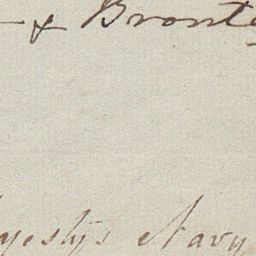 & Bronte
jestys Navy